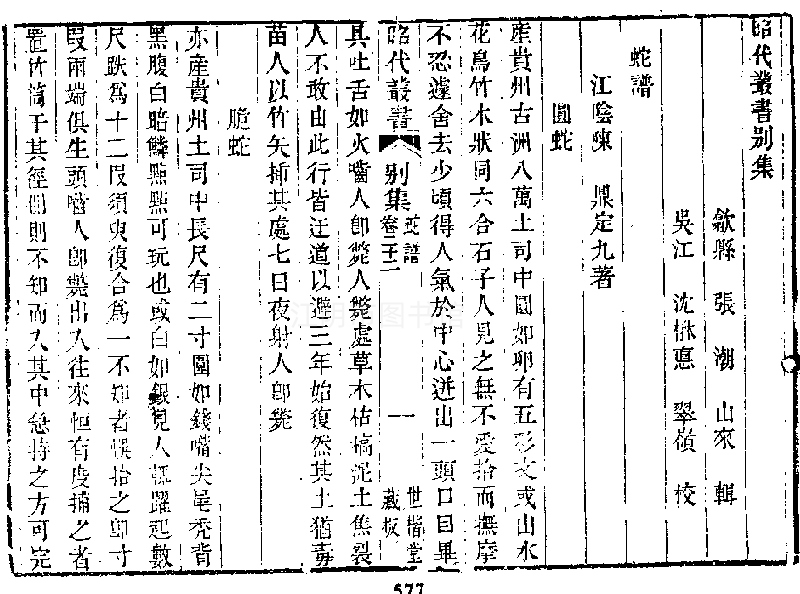 昭代叢書别集
歙縣 張 潮 山來 輯
吳江 沈楙悳 翠嶺 校
蛇譜
江陰陳 鼎定九著
圓蛇
產貴州古洲八萬土司中圓如卵有五彩文或山水
花鳥竹木狀同六合石子人見之無不愛拾而撫摩
不忍遽舍去少頃得人氣於中心迸出一頭口目畢
昭代叢書 别集 蛇譜 卷三十二 一 世楷堂藏板
具吐舌如火嚙人卽斃人斃處草木枯槁泥土焦裂
人不敢由此行皆迂道以避三年始復然其土猶毒
苗人以竹矢揷其處七日夜射人卽斃
脆蛇
亦產貴州土司中長尺有二寸圍如錢嘴尖尾禿背
黑腹白暗鱗點點可玩也或白如銀見人輒躍起數
尺跌爲十二叚須臾復合爲一不知者悞拾之卽寸
叚兩端俱生頭嚙人卽斃出入往來恒有度捕之者
置竹筒于其徑間則不知而入其中急持之方可完
577